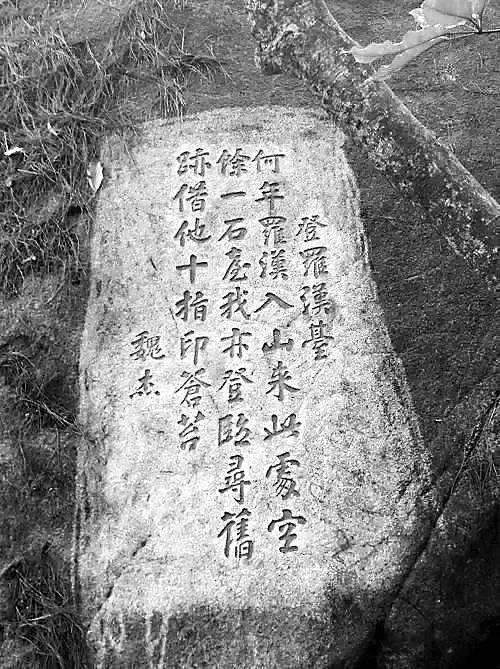 登羅漢臺
何年羅漢入山来此處空
餘一石臺我亦登臨尋舊
跡借他十指印蒼苔
魏杰